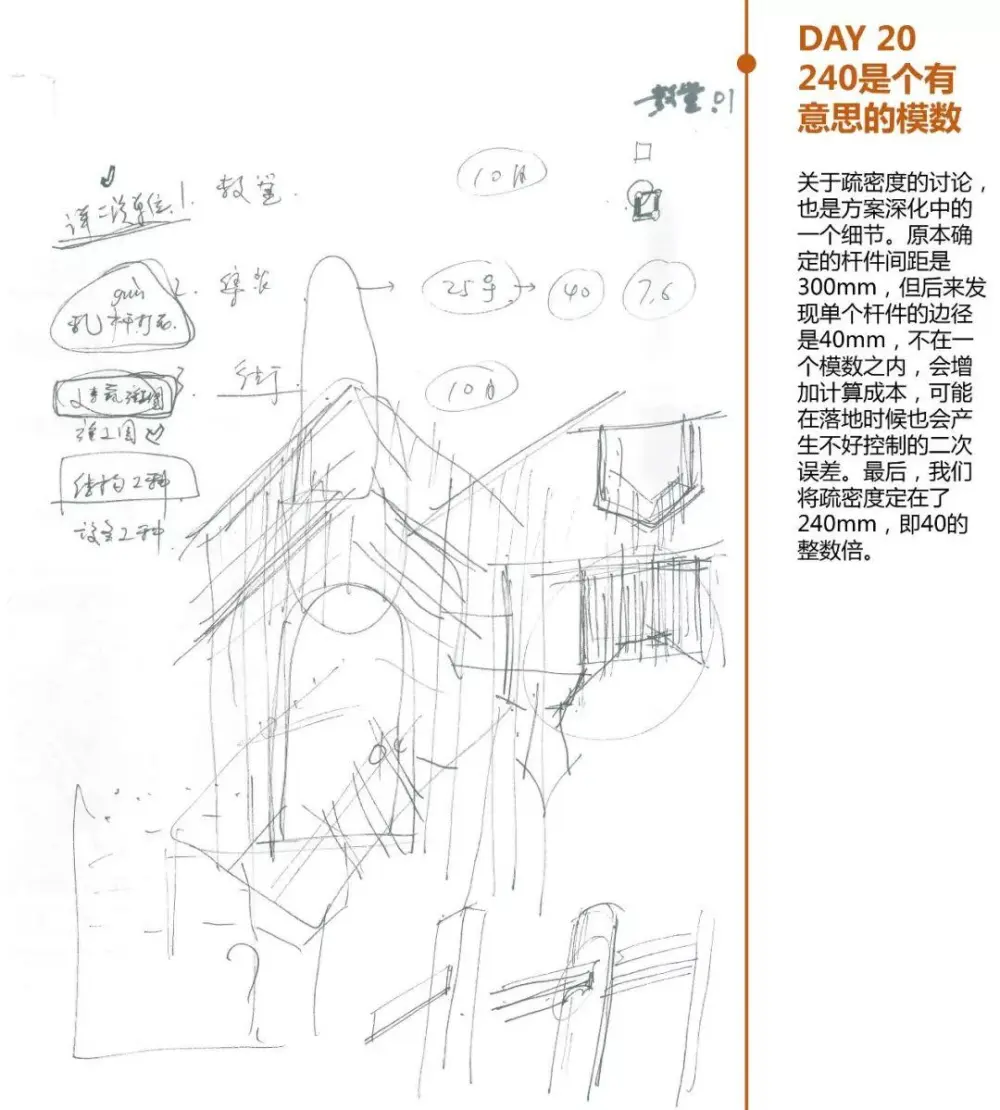 DAY 20
240是个有
意思的模数
关于疏密度的讨论，
也是方案深化中的
一个细节。原本确
定的杆件间距是
300mm，但后来发
现单个杆件的边径
是40mm，不在一
个模数之内，会增
加计算成本，可能
在落地时候也会产
生不好控制的二次
误差。最后，我们
将疏密度定在了
240mm，即40的
整数倍。
教堂.01
1 教堂. 10月
2. 25号 40 7.6
3 10月
结构工种